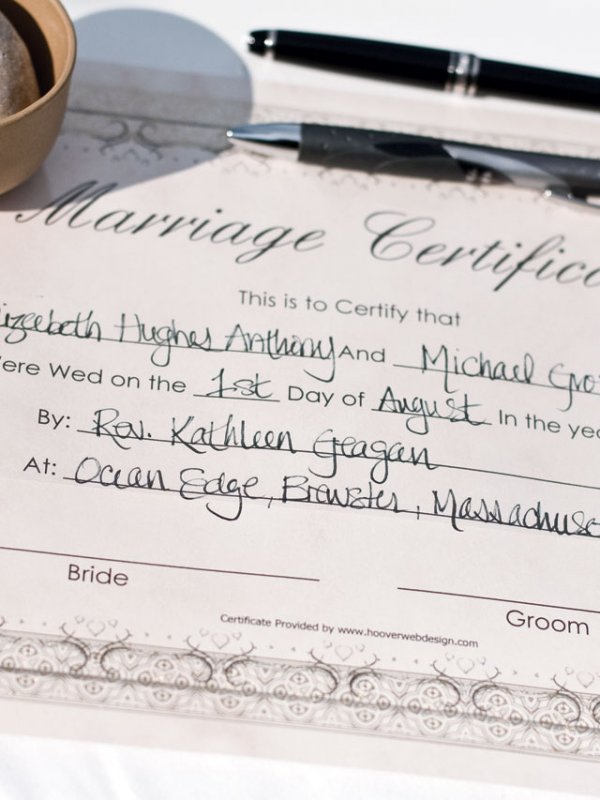 Marriage Certifica
This is to Certify that
izeebeth Hughes Anthony And Michael Gro
ere Wed on the 1st Day of August In the yea
By: Rev. Kathleen Geagan
At: Ocean Edge, Brewster, Massachuse
Bride
Groom
Certificate Provided by www.hooverwebdesign.com